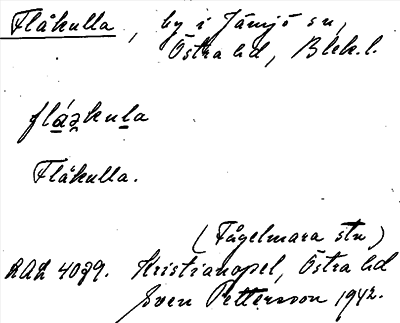 Flåkulla, by i Jämjö sn,
Östra hd, Blek.l.
flázkula
Flåkulla.
(Fågelmara stn)
RAÄ 4029. Kristianopel, Östra hd
Sven Pettersson 1942.